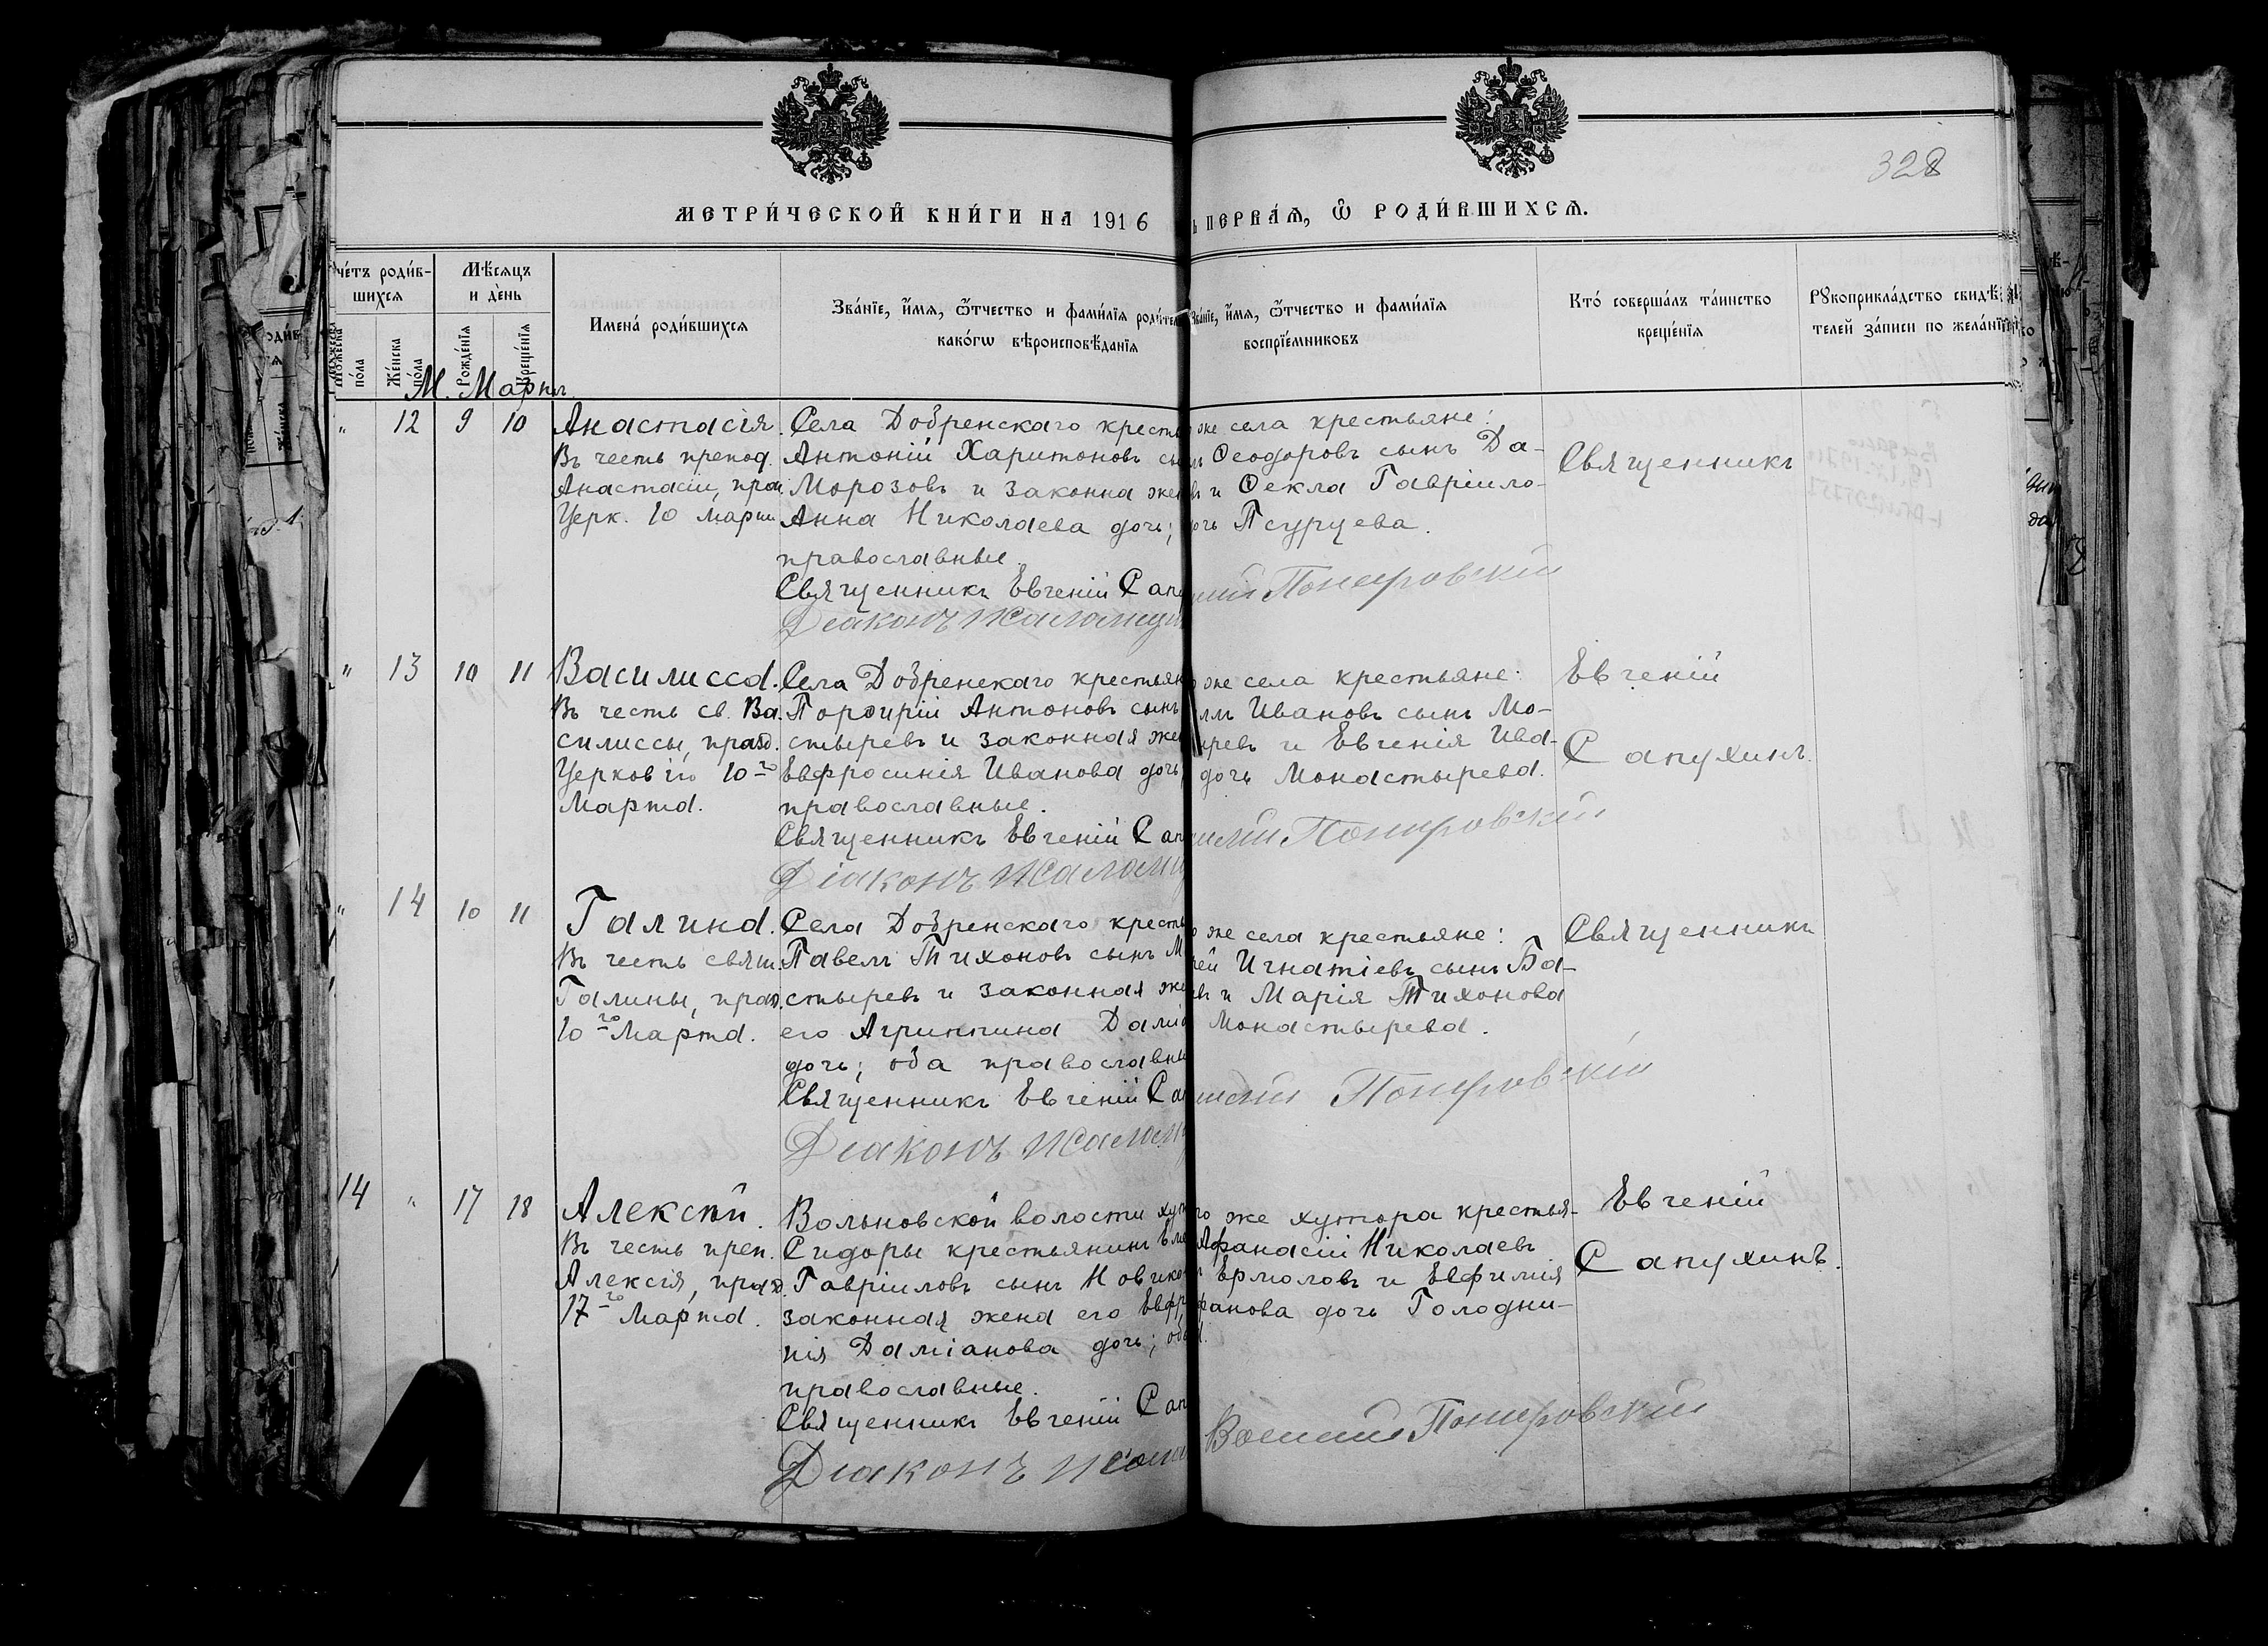 328
МЕТРИ́ЧЕСКОЙ КНИ́ГИ НА 1916
ПЕРВАѦ, Ѡ РОДИ́ВШИХСѦ.
че́тъ роди́в-
шихсѧ
Мѣ́сѧцъ
и де́нь
Имена́ роди́вшихсѧ
Зва́нїе, и́мѧ, ѻ́тчество и фами́лїѧ роди́тел
како́гѡ вѣроисповѣ́данїѧ
Зва́нїе, и́мѧ, ѻ́тчество и фами́лїѧ
воспрїе́мниковъ
Кто́ соверша́лъ та́инство
креще́нїѧ
Рꙋкоприкла́дство свидѣ́-
телей за́писи по жела́нїю
по́ла
Же́нска
по́ла
Рожде́нїѧ
Креще́нїѧ
М. Мартъ
" 12 9 10
Анастасія.
Въ честь препод.
Анастасіи, праз
Церк. 10 март
Села Добренскаго кресть
Антоній Харитоновъ сы
Морозовъ и законна же
Анна Николаева дочь;
православные.
Священникъ Евгеній Сап
Діаконъ
же села крестьяне:
Ѳеодоровъ сынъ Да-
въ и Ѳекла Гавріило-
дочь Псурцева.
Покровскій
Священникъ
" 13 10 11
Василисса.
Въ честь св. Ва
силиссы, празд.
Церковію 10-го
Марта.
Села Добренскаго крестьян
Порфирій Антоновъ сынъ
стыревъ и законная же
Евфросинія Иванова дочь
православные.
Священникъ Евгеній Сап
Діаконъ
же села крестьяне:
Ивановъ сынъ Мо-
ыревъ и Евгенія Ива-
дочь Монастырева.
Покровскій
Евгеній
Сапухинъ.
" 14 10 11
Галина.
Въ честь свящ.
Галины, празд.
10-го Марта.
Села Добренскаго кресть
Павелъ Тихоновъ сынъ М
стыревъ и законная же
его Агриппина Даміа
дочь; оба православны
Священникъ Евгеній Са
Діаконъ
же села крестьяне:
ей Игнатіевъ сынъ Ба-
въ и Марія Тихонова
Монастырева.
Покровскій
Священникъ
14 " 17 18
Алексѣй.
Въ честь преп.
Алексія, празд.
17-го Марта.
Вольновской волости хут
Сидоры крестьянинъ
Гавріиловъ сынъ Новико
законная жена его Евфр
нія Даміанова дочь; оба
православные.
Священникъ Евгеній Сап
Діаконъ
го же хутора крестья-
Афанасій Николаевъ
Ермоловъ и Евфимія
фанова дочь Голодни-
Василій Покровскій
Евгеній
Сапухинъ.